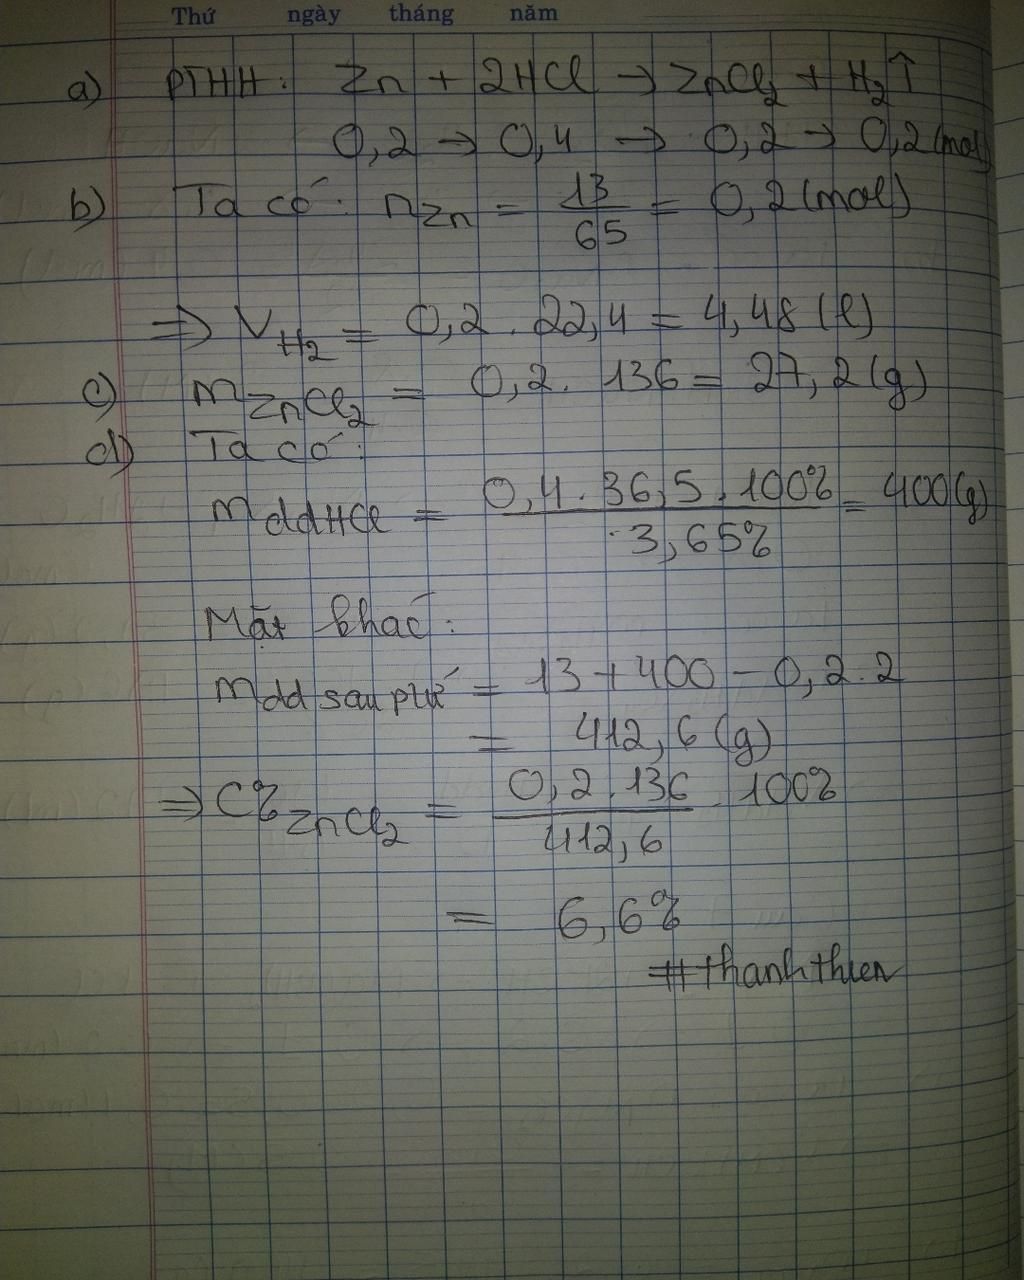 Thứ ngày tháng năm
a) PTHH: Zn + 2HCl → ZnCl₂ + H₂↑
0,2 → 0,4 → 0,2 → 0,2 (mol)
b) Ta có: nZn = 13/65 = 0,2 (mol)
=> VH₂ = 0,2 . 22,4 = 4,48 (l)
c) mZnCl₂ = 0,2 . 136 = 27,2 (g)
d) Ta có:
mddHCl = 0,4 . 36,5 . 100% / 3,65% = 400 (g)
Mặt khác:
mdd sau pứ = 13 + 400 - 0,2 . 2
= 412,6 (g)
=> C%ZnCl₂ = 0,2 . 136 / 412,6 . 100%
= 6,6%
#thanhthien